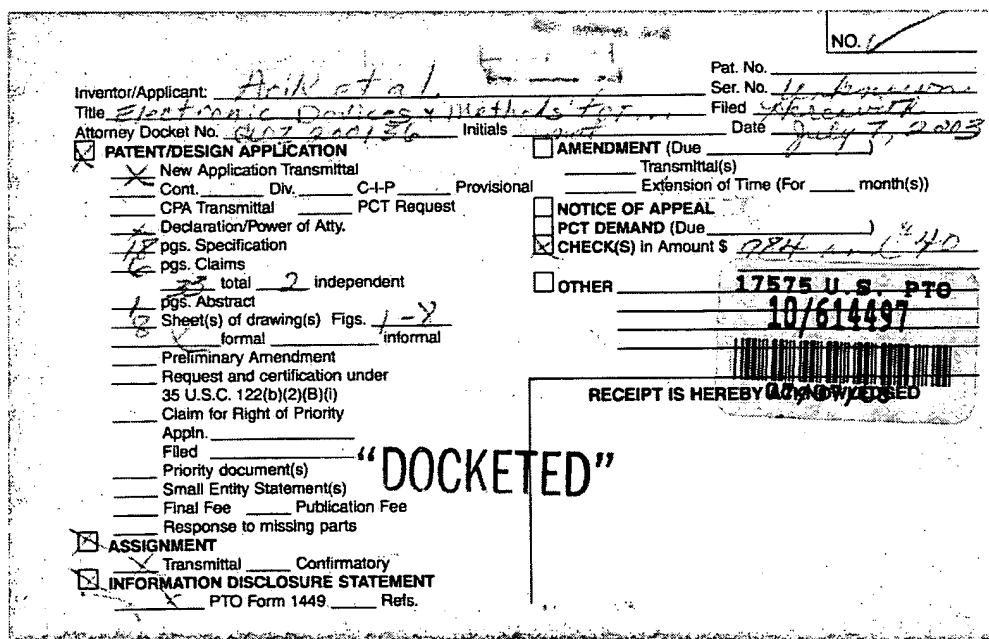 NO. 1
Inventor/Applicant: Arik et al.
Pat. No.
Ser. No.
Title Electronic Devices & Methods for...
Filed Herewith
Attorney Docket No. Initials
Date July 7, 2003
PATENT/DESIGN APPLICATION
X New Application Transmittal
Cont. Div. C-I-P Provisional
CPA Transmittal PCT Request
X Declaration/Power of Atty.
18 pgs. Specification
6 pgs. Claims
33 total 2 independent
1 pgs. Abstract
8 Sheet(s) of drawing(s) Figs. 1-8
X formal informal
Preliminary Amendment
Request and certification under
35 U.S.C. 122(b)(2)(B)(i)
Claim for Right of Priority
Appln.
Filed
Priority document(s)
Small Entity Statement(s)
Final Fee Publication Fee
Response to missing parts
ASSIGNMENT
X Transmittal Confirmatory
INFORMATION DISCLOSURE STATEMENT
X PTO Form 1449 Refs.
AMENDMENT (Due )
Transmittal(s)
Extension of Time (For month(s))
NOTICE OF APPEAL
PCT DEMAND (Due )
CHECK(S) in Amount $
OTHER
17575 U.S. PTO
10/614497
07/07/03
RECEIPT IS HEREBY ACKNOWLEDGED
"DOCKETED"